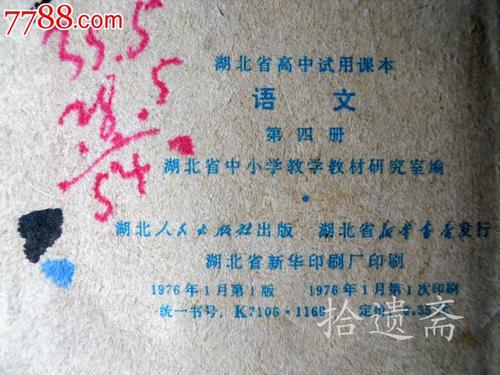 7788.com
湖北省高中试用课本
语 文
第四册
湖北省中小学教学教材研究室编
湖北人民出版社出版 湖北省新华书店发行
湖北省新华印刷厂印刷
1976年1月第1版 1976年1月第1次印刷
统一书号：K7106·1169 定价
拾遗斋